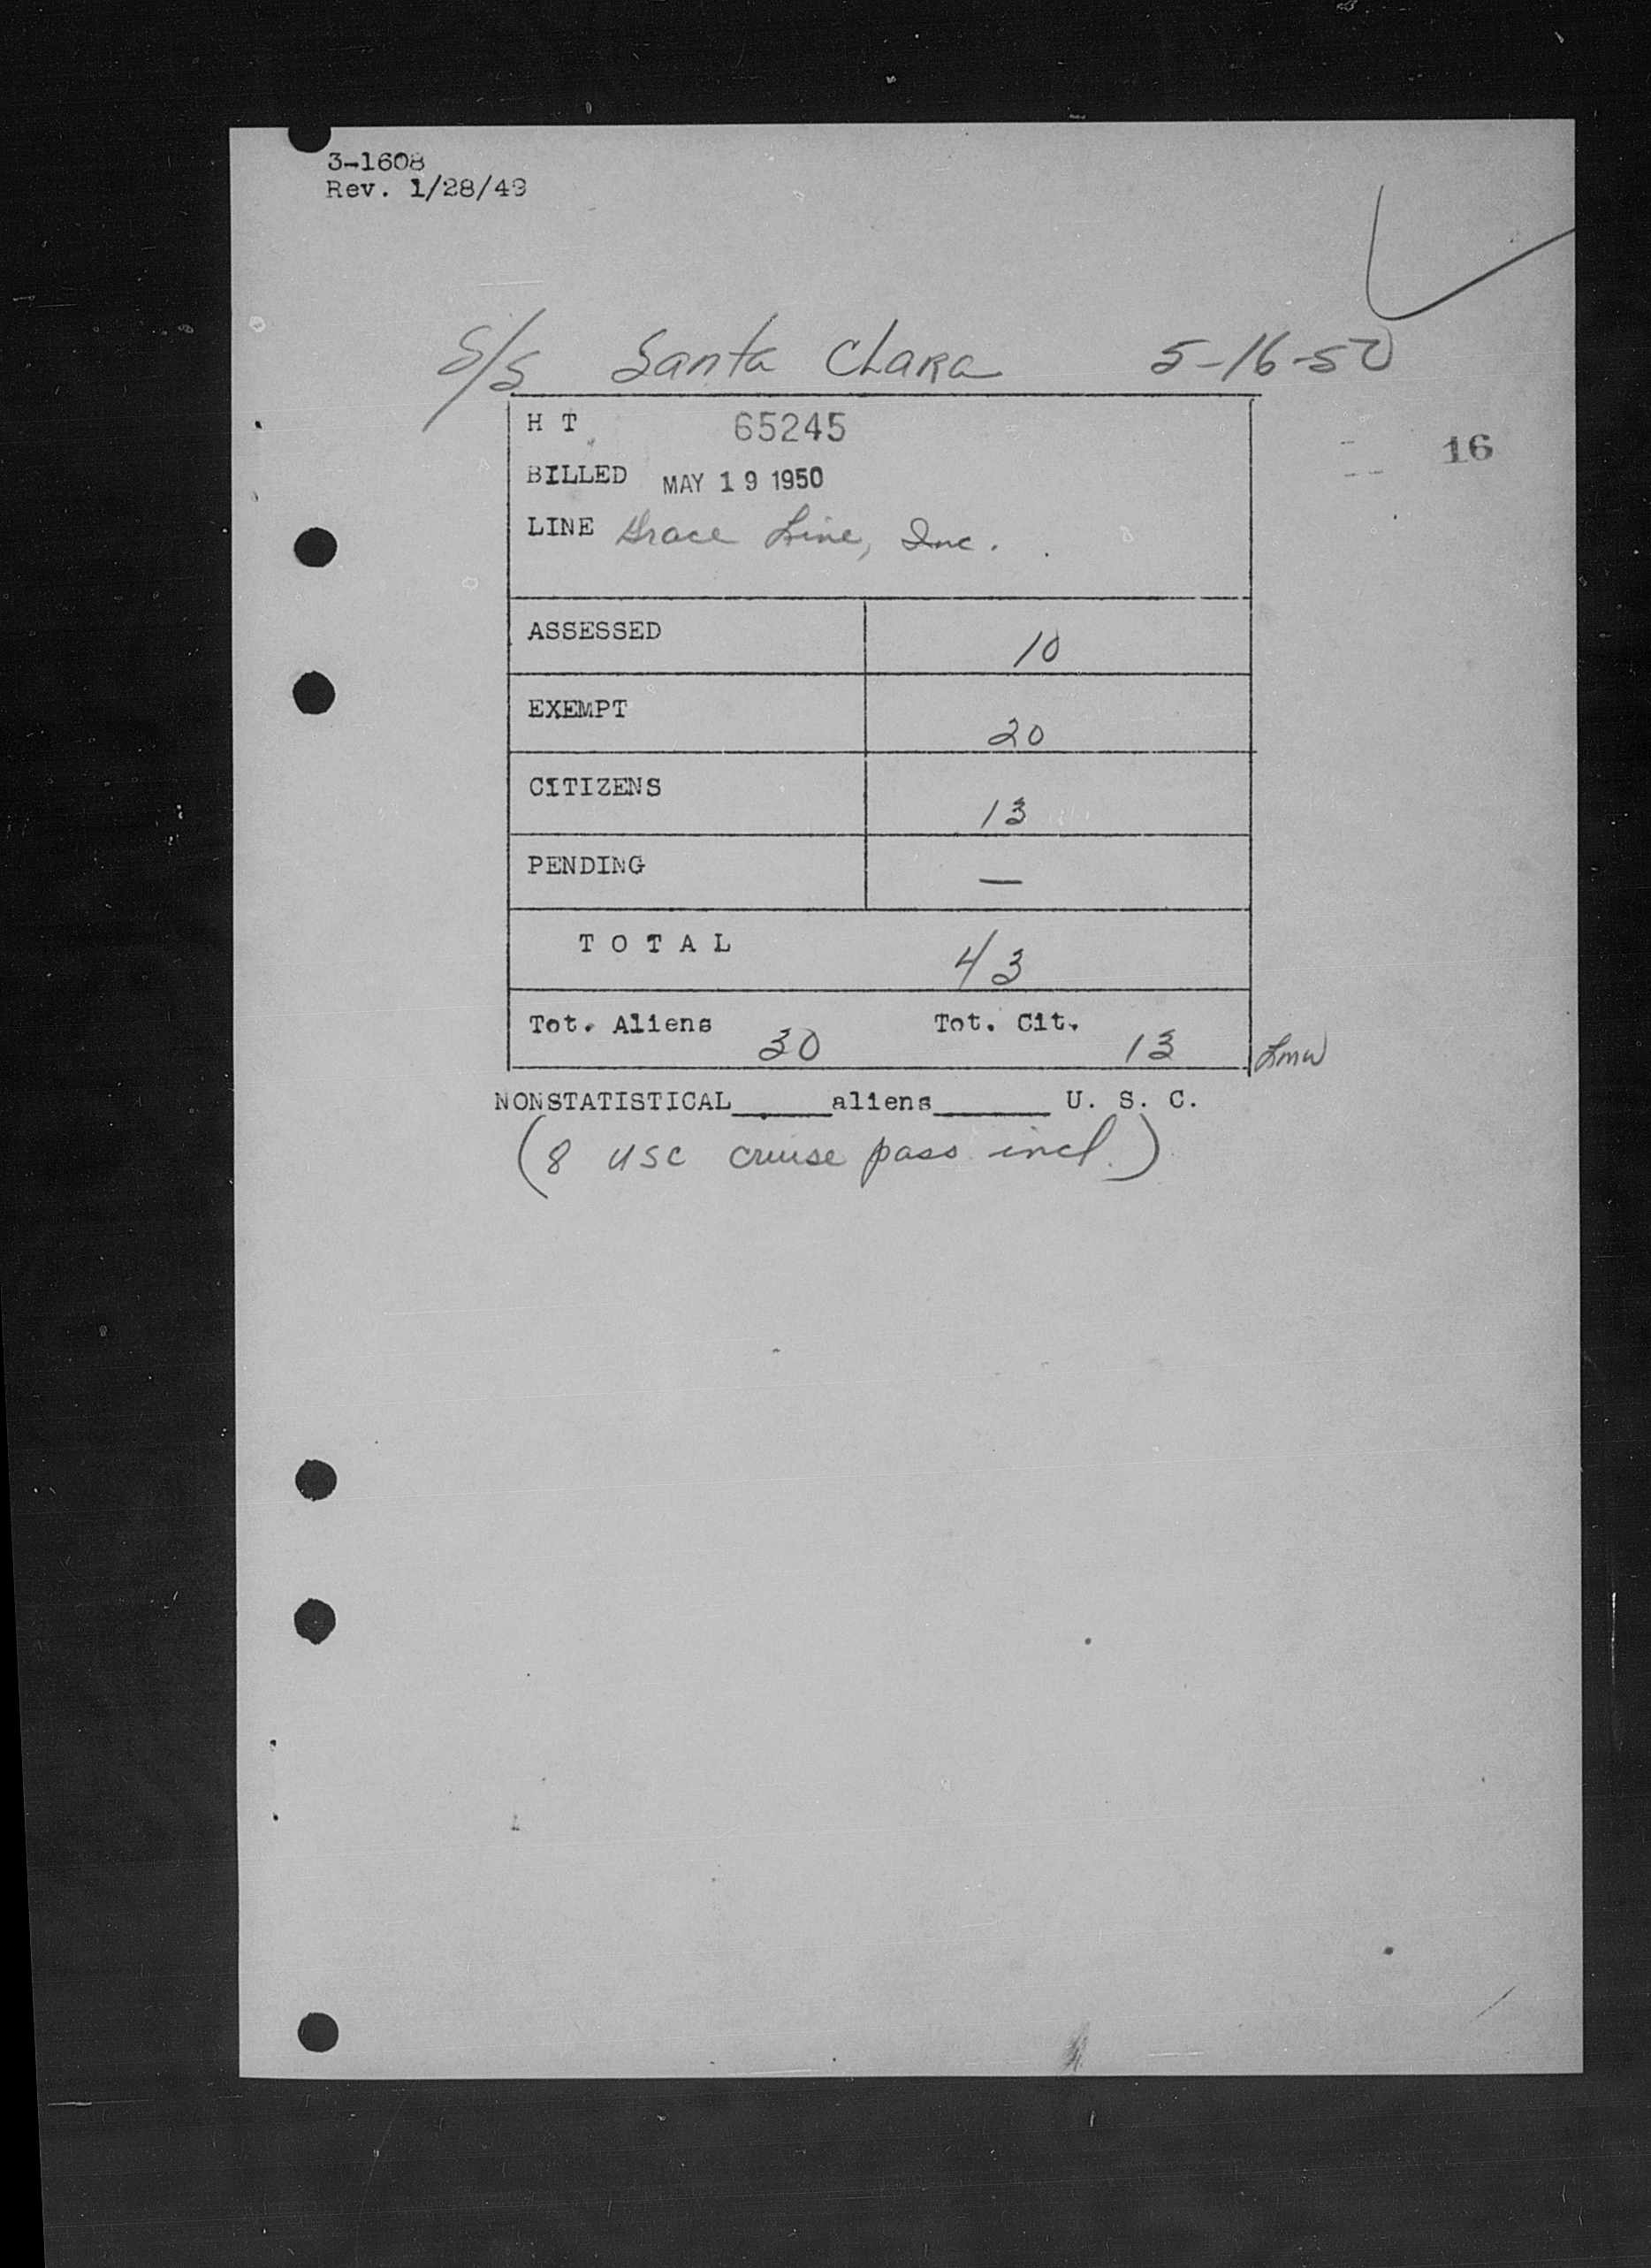 3-1608
Rev. 1/28/49
S/S Santa Clara 5-16-50
H T 65245
16
BILLED MAY 19 1950
LINE Grace Line, Inc.
ASSESSED 10
EXEMPT 20
CITIZENS 13
PENDING —
T O T A L 43
Tot. Aliens 30 Tot. Cit. 13 Lmw
NONSTATISTICAL_____aliens______ U. S. C.
(8 USC cruise pass incl.)